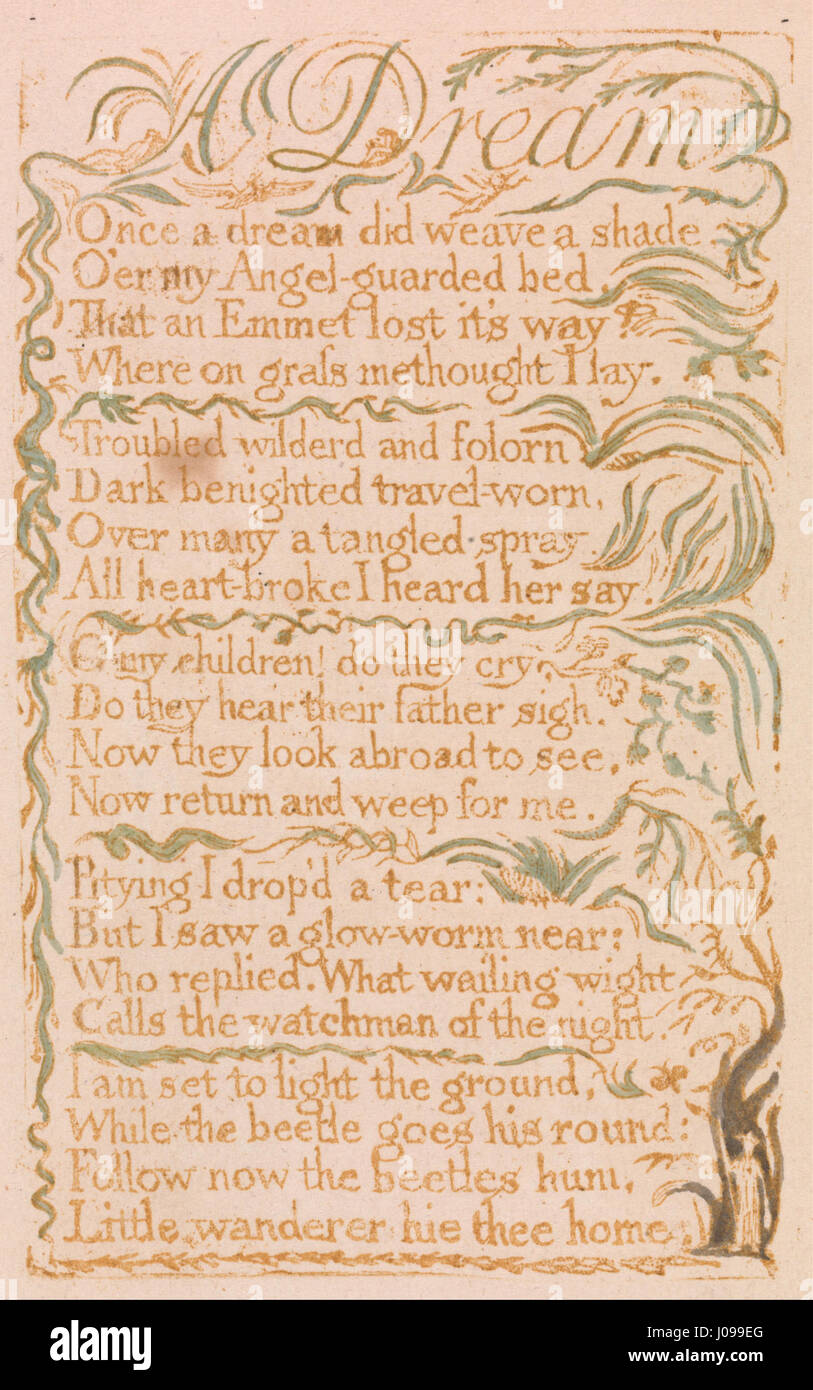 A Dream
Once a dream did weave a shade
O'er my Angel-guarded bed,
That an Emmet lost it's way
Where on graſs methought I lay.
Troubled wilderd and folorn
Dark benighted travel-worn,
Over many a tangled spray.
All heart-broke I heard her say.
O my children! do they cry,
Do they hear their father sigh.
Now they look abroad to see,
Now return and weep for me.
Pitying I drop'd a tear:
But I saw a glow-worm near:
Who replied. What wailing wight
Calls the watchman of the night.
I am set to light the ground,
While the beetle goes his round:
Follow now the beetles hum,
Little wanderer hie thee home.
alamy
alamy
Image ID: J099EG
www.alamy.com